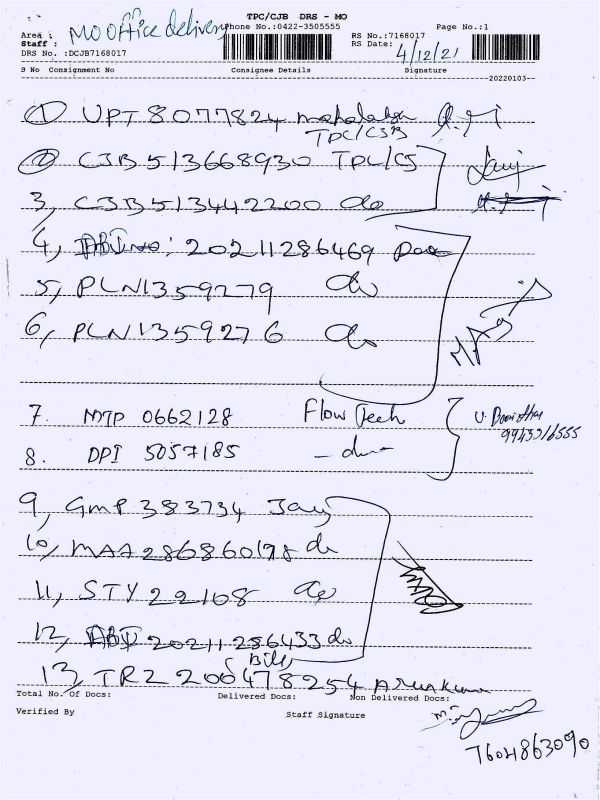 TPC/CJB DRS - MO
MO Office delivery
Phone No.:0422-3505555
Page No.:1
Area :
RS No.:7168017
Staff :
RS Date: 4/12/21
DRS No. :DCJB7168017
S No Consignment No Consignee Details Signature
20220103
1 UPT 8077824
TPC/CJB
2 CJB513668930 TPC/CJ
3, CJB513442200 do
4, 20211286469
5, PLN1359279 do
6, PLN1359276 do
7. MTP 0662128 Flow Tech
8. DPI 5057185 - do -
U.
9943316555
9, GMP 383734
10, MAA286860178 do
11, STY 22108 do
12, 20211286433 do
(Bill)
13, TRZ 200478254
Total No. Of Docs: Delivered Docs: Non Delivered Docs:
Verified By Staff Signature
7604863090